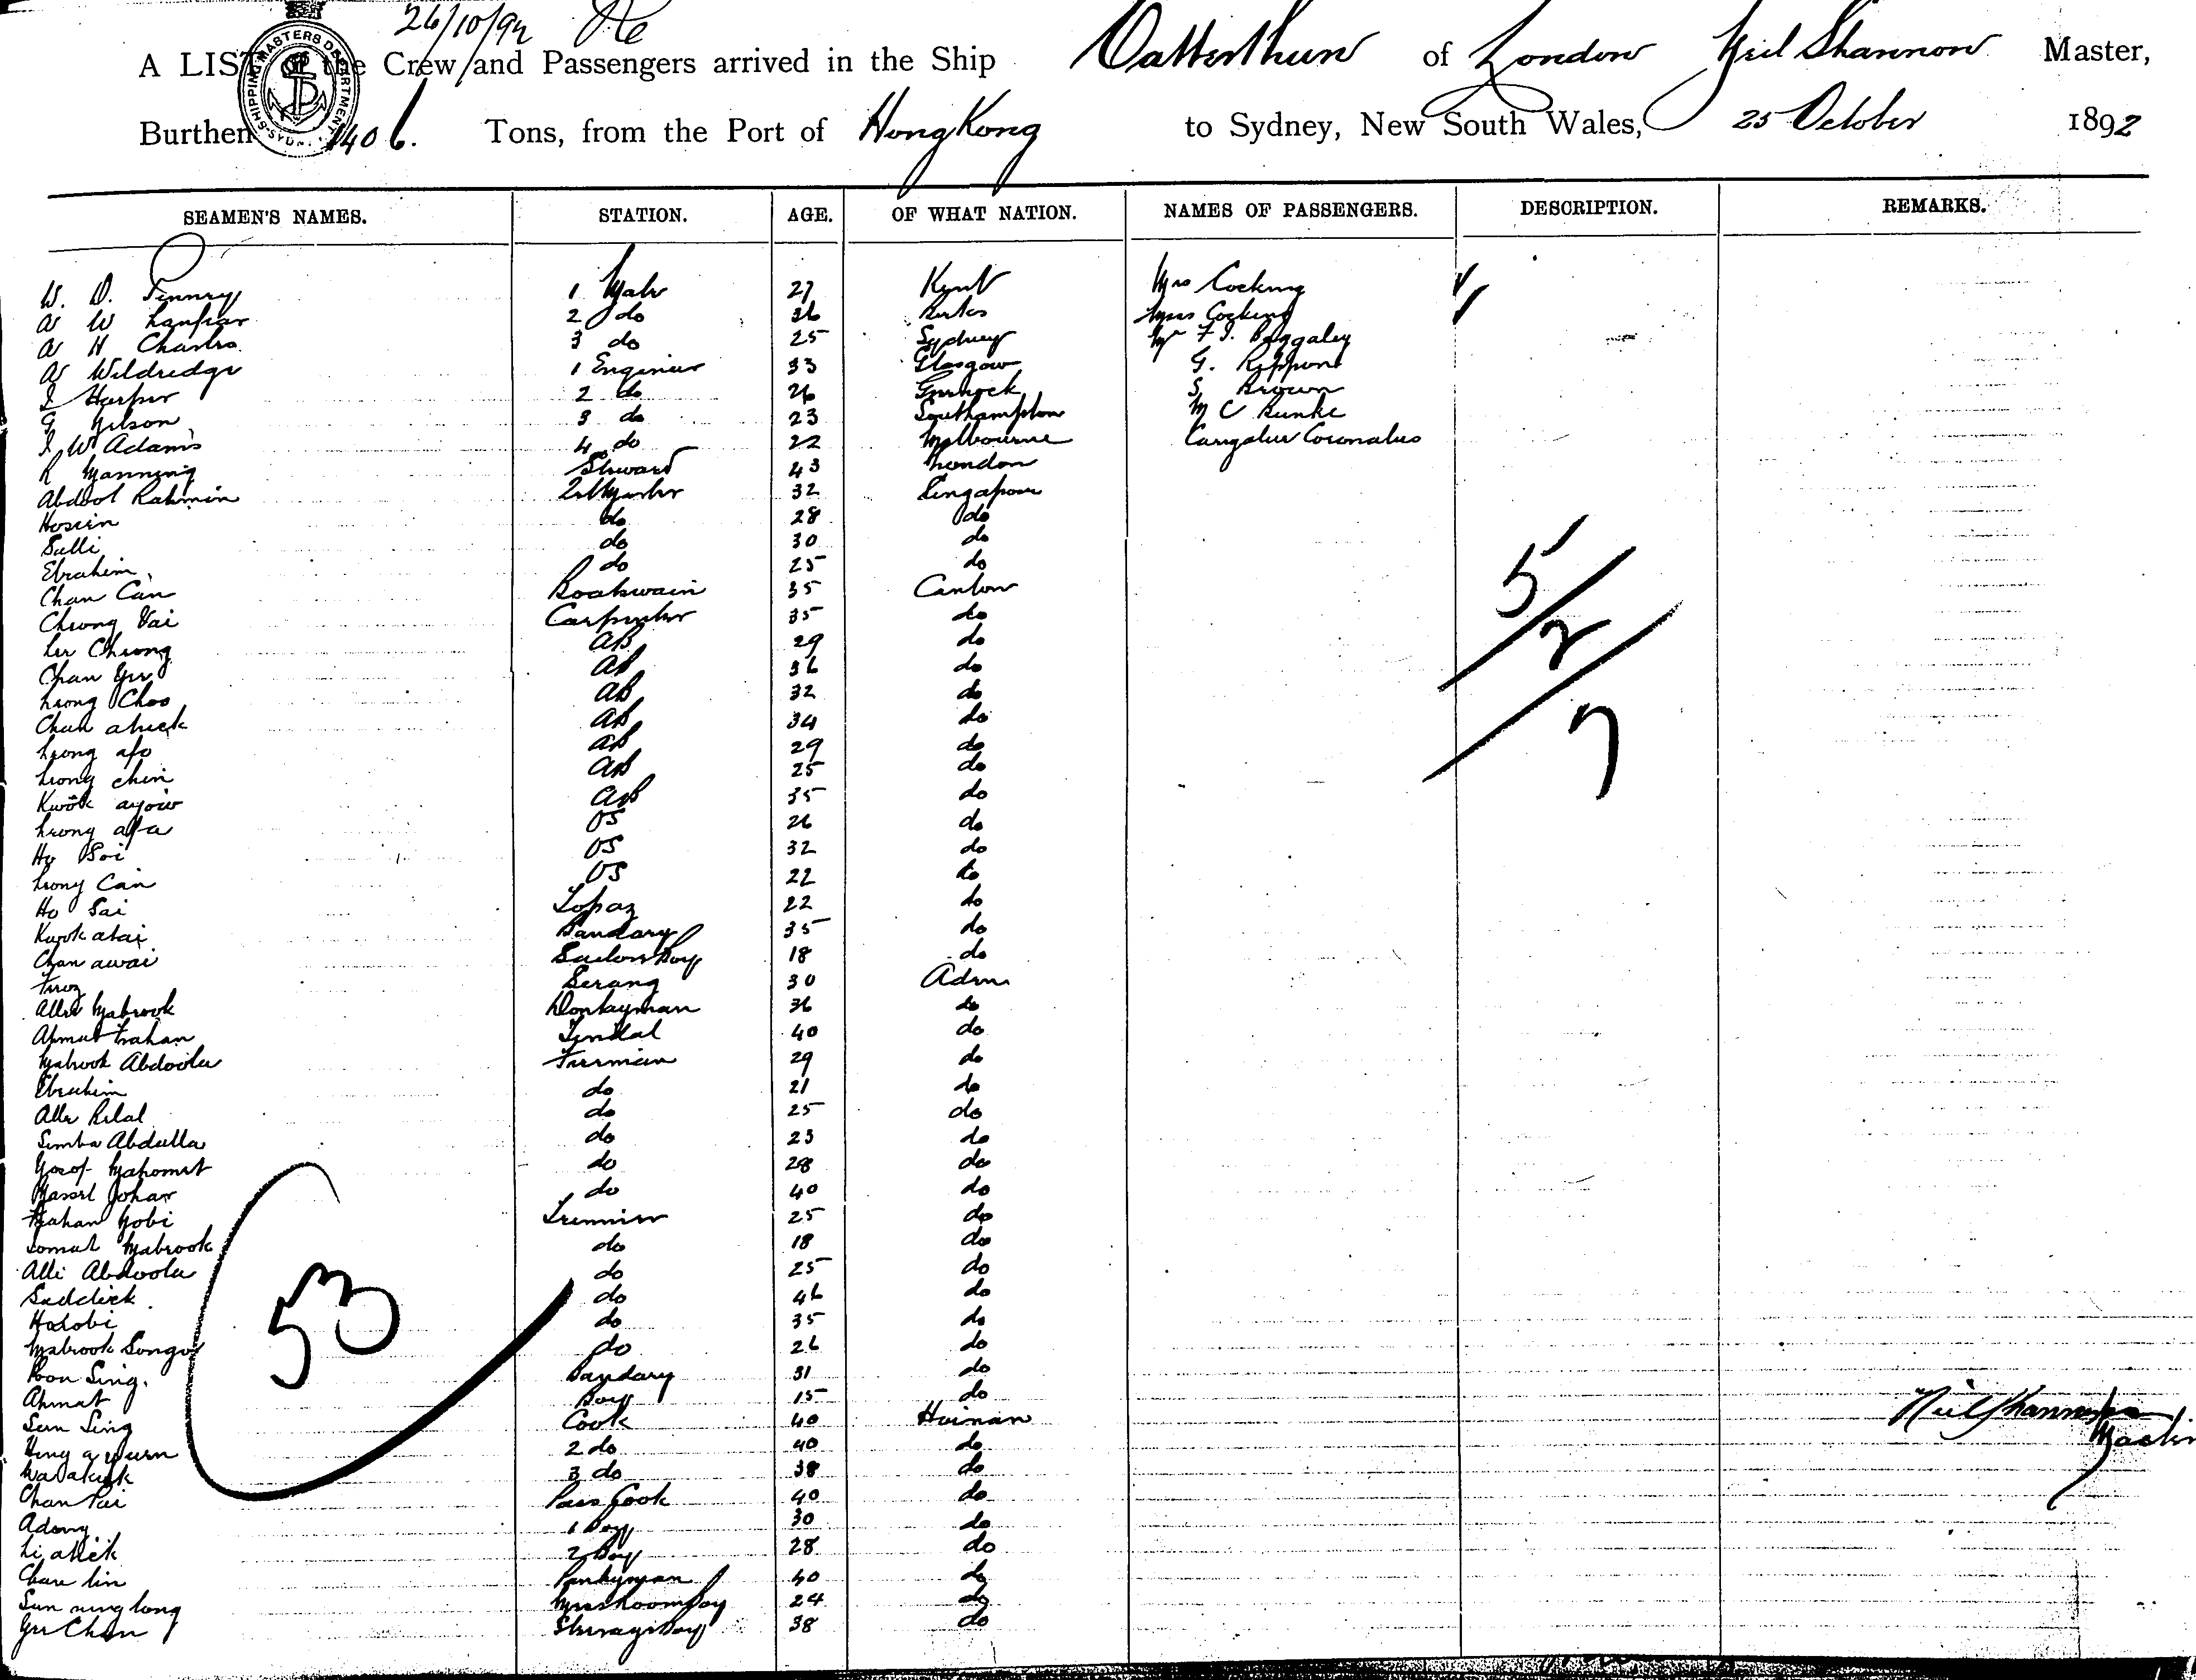 26/10/92
A LIST of the Crew and Passengers arrived in the Ship Catterthun of London Neil Shannon Master,
SHIPPING MASTERS DEPARTMENT SYDNEY
Burthen 1406. Tons, from the Port of Hong Kong to Sydney, New South Wales, 25 October 1892
SEAMEN'S NAMES. STATION. AGE. OF WHAT NATION. NAMES OF PASSENGERS. DESCRIPTION. REMARKS.
W. D. 1 Mate 27 Kent Mrs Cocking
A W Lanfear 2 do 36 Miss Cocking
A H Charles 3 do 25 Sydney Mr F. J. Baggaley
A Wildredge 1 Engineer 33 Glasgow G. Rippon
J Harper 2 do 26 Gurnock S Brown
G Gilson 3 do 23 Southampton M C Bunke
J W. Adams 4 do 22 Melbourne
R Manning Steward 43 London
Abdool Rahmin 32 Singapore
Hosein do 28 do
Salli do 30 do
Ebrahim do 25 do
Chan Can Boatswain 35 Canton
Cheong Carpenter 35 do
Lee Cheong AB 29 do
Chan Yee AB 36 do
Leong Choo AB 32 do
Chan AB 34 do
Leong afo AB 29 do
Leong chin AB 25 do
Kwok ayow AB 35 do
Leong afa OS 26 do
Ho Soi OS 32 do
Leong Can OS 22 do
Ho Sai 22 do
Kwok atai Bandary 35 do
Chan awai Sailors Boy 18 do
Firoz Serang 30 Aden
Mabrook Donkeyman 36 do
Ahmat Frahan Tindal 40 do
Mabrook Abdoola Fireman 29 do
Ebrahim do 21 do
Alle Belal do 25 do
Simba Abdulla do 23 do
Yosof Mahomet do 28 do
Johar do 40 do
Frahan Gobi Trimmer 25 do
Mabrook do 18 do
Alli Abdoola do 25 do
Saddick do 46 do
Halobi do 35 do
Mabrook Songor do 26 do
Poon Sing. Bandary 31 do
Ahmat Boy 15 do
Sun Sing Cook 40 Hainan
2 do 40 do
3 do 38 do
Chan Pai Pass Cook 40 do
Adong 1 Boy 30 do
Li 2 Boy 28 do
Chan lin Pantryman 40 do
Sun long Messroom Boy 24 do
Yee Chan Steerage Boy 38 do
5/2/7
53
Neil Shannon
Master